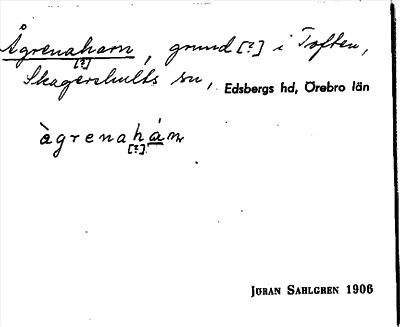 Ågrenaham [?], grund [?] i Toften,
Skagershults sn, Edsbergs hd, Örebro län
àgrenahám [?]
JÖRAN SAHLGREN 1906